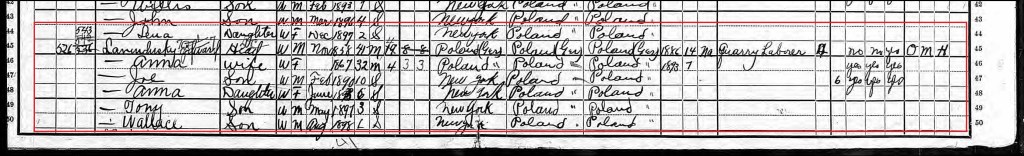 Son W M Feb 1893 7 S New York Poland " Poland "
43 — John Son W M Mar 1896 4 S New York Poland " Poland " 43
44 — Lena Daughter W F Dec 1897 2 S New York Poland " Poland " 44
45 Head W M Nov 1858 41 M Poland Ger Poland Ger Poland Ger 1886 14 Na Quarry Laborer no no yes O M H 45
46 — Anna Wife W F 1867 32 M 4 3 3 Poland " Poland Poland " 1893 7 yes yes yes 46
47 — Joe Son W M Feb 1890 10 S New York Poland " Poland " 6 yes yes yes 47
48 — Anna Daughter W F June S New York Poland " Poland " 48
49 — Tony Son W M May 1897 3 S New York Poland " Poland " 49
50 — Wallace Son W M Aug 1898 1 S New York Poland " Poland " 50